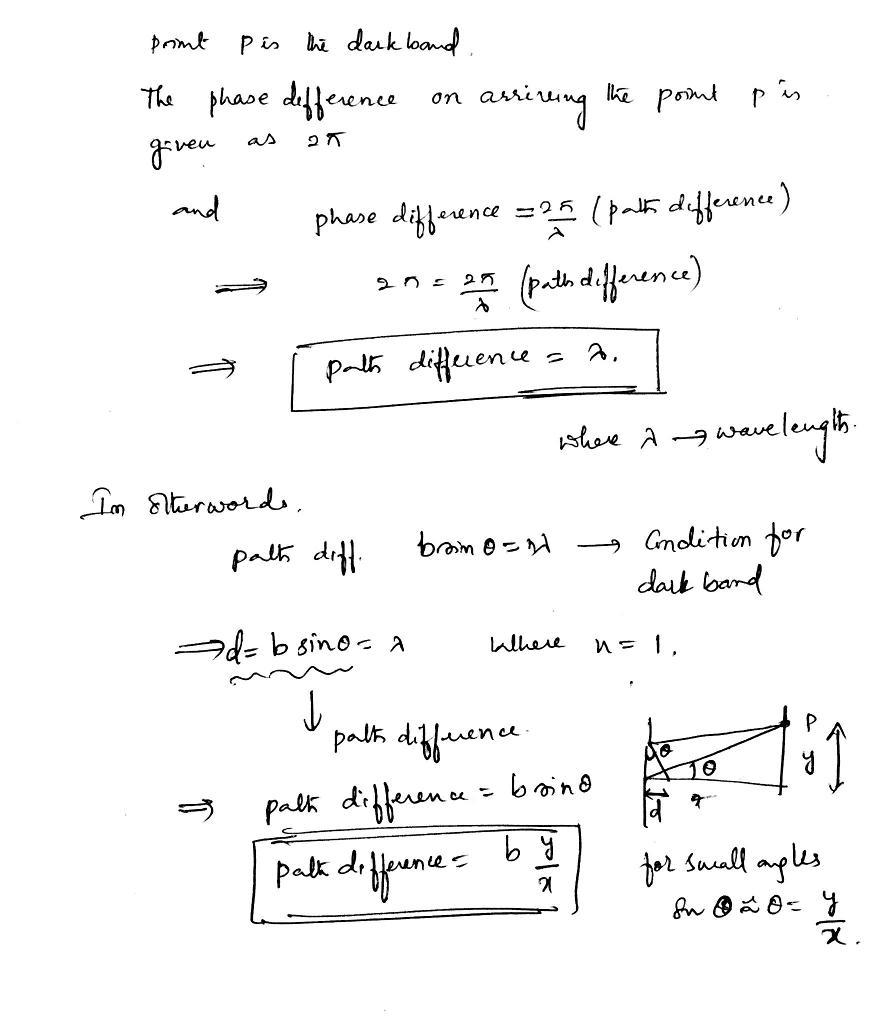 point p is the dark band.
The phase difference on arriving the point p is
given as 2π
and phase difference = 2π/λ (path difference)
⟹ 2π = 2π/λ (path difference)
⟹ path difference = λ.
where λ → wavelength.
In otherwords,
path diff. b sin θ = nλ → Condition for
dark band
⟹ d = b sinθ = λ where n = 1.
↓ path difference.
⟹ path difference = b sinθ
path difference = b y/x
P
θ
θ
y
d
x
for small angles
Sin θ ≈ θ = y/x.